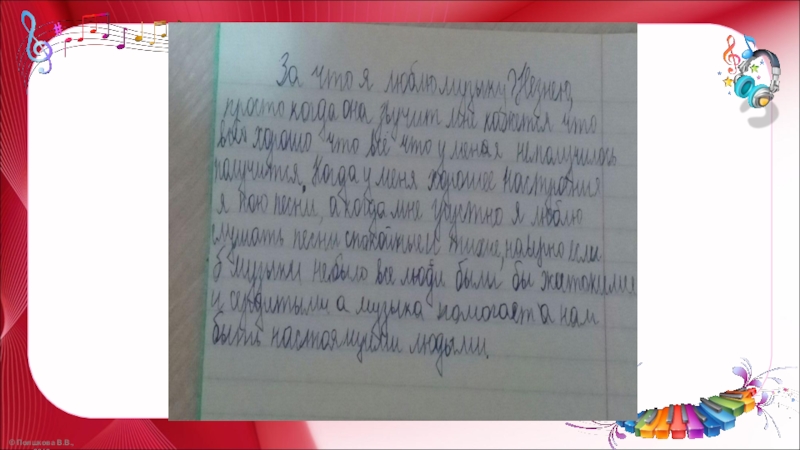 За что я люблю музыку? Незнею,
просто когда она звучит мне кажется что
всё хорошо что всё что у меня неполучилось
получится. Когда у меня хорошее настроние
я пою песни, а когда мне грустно я люблю
слушать песни спокойные и тихие, наверно если
б музыки небыло все люди были бы жистокими
и сердитыми а музыка помогает а нам
быть настоящими людьми.
© Понакова В.В.,